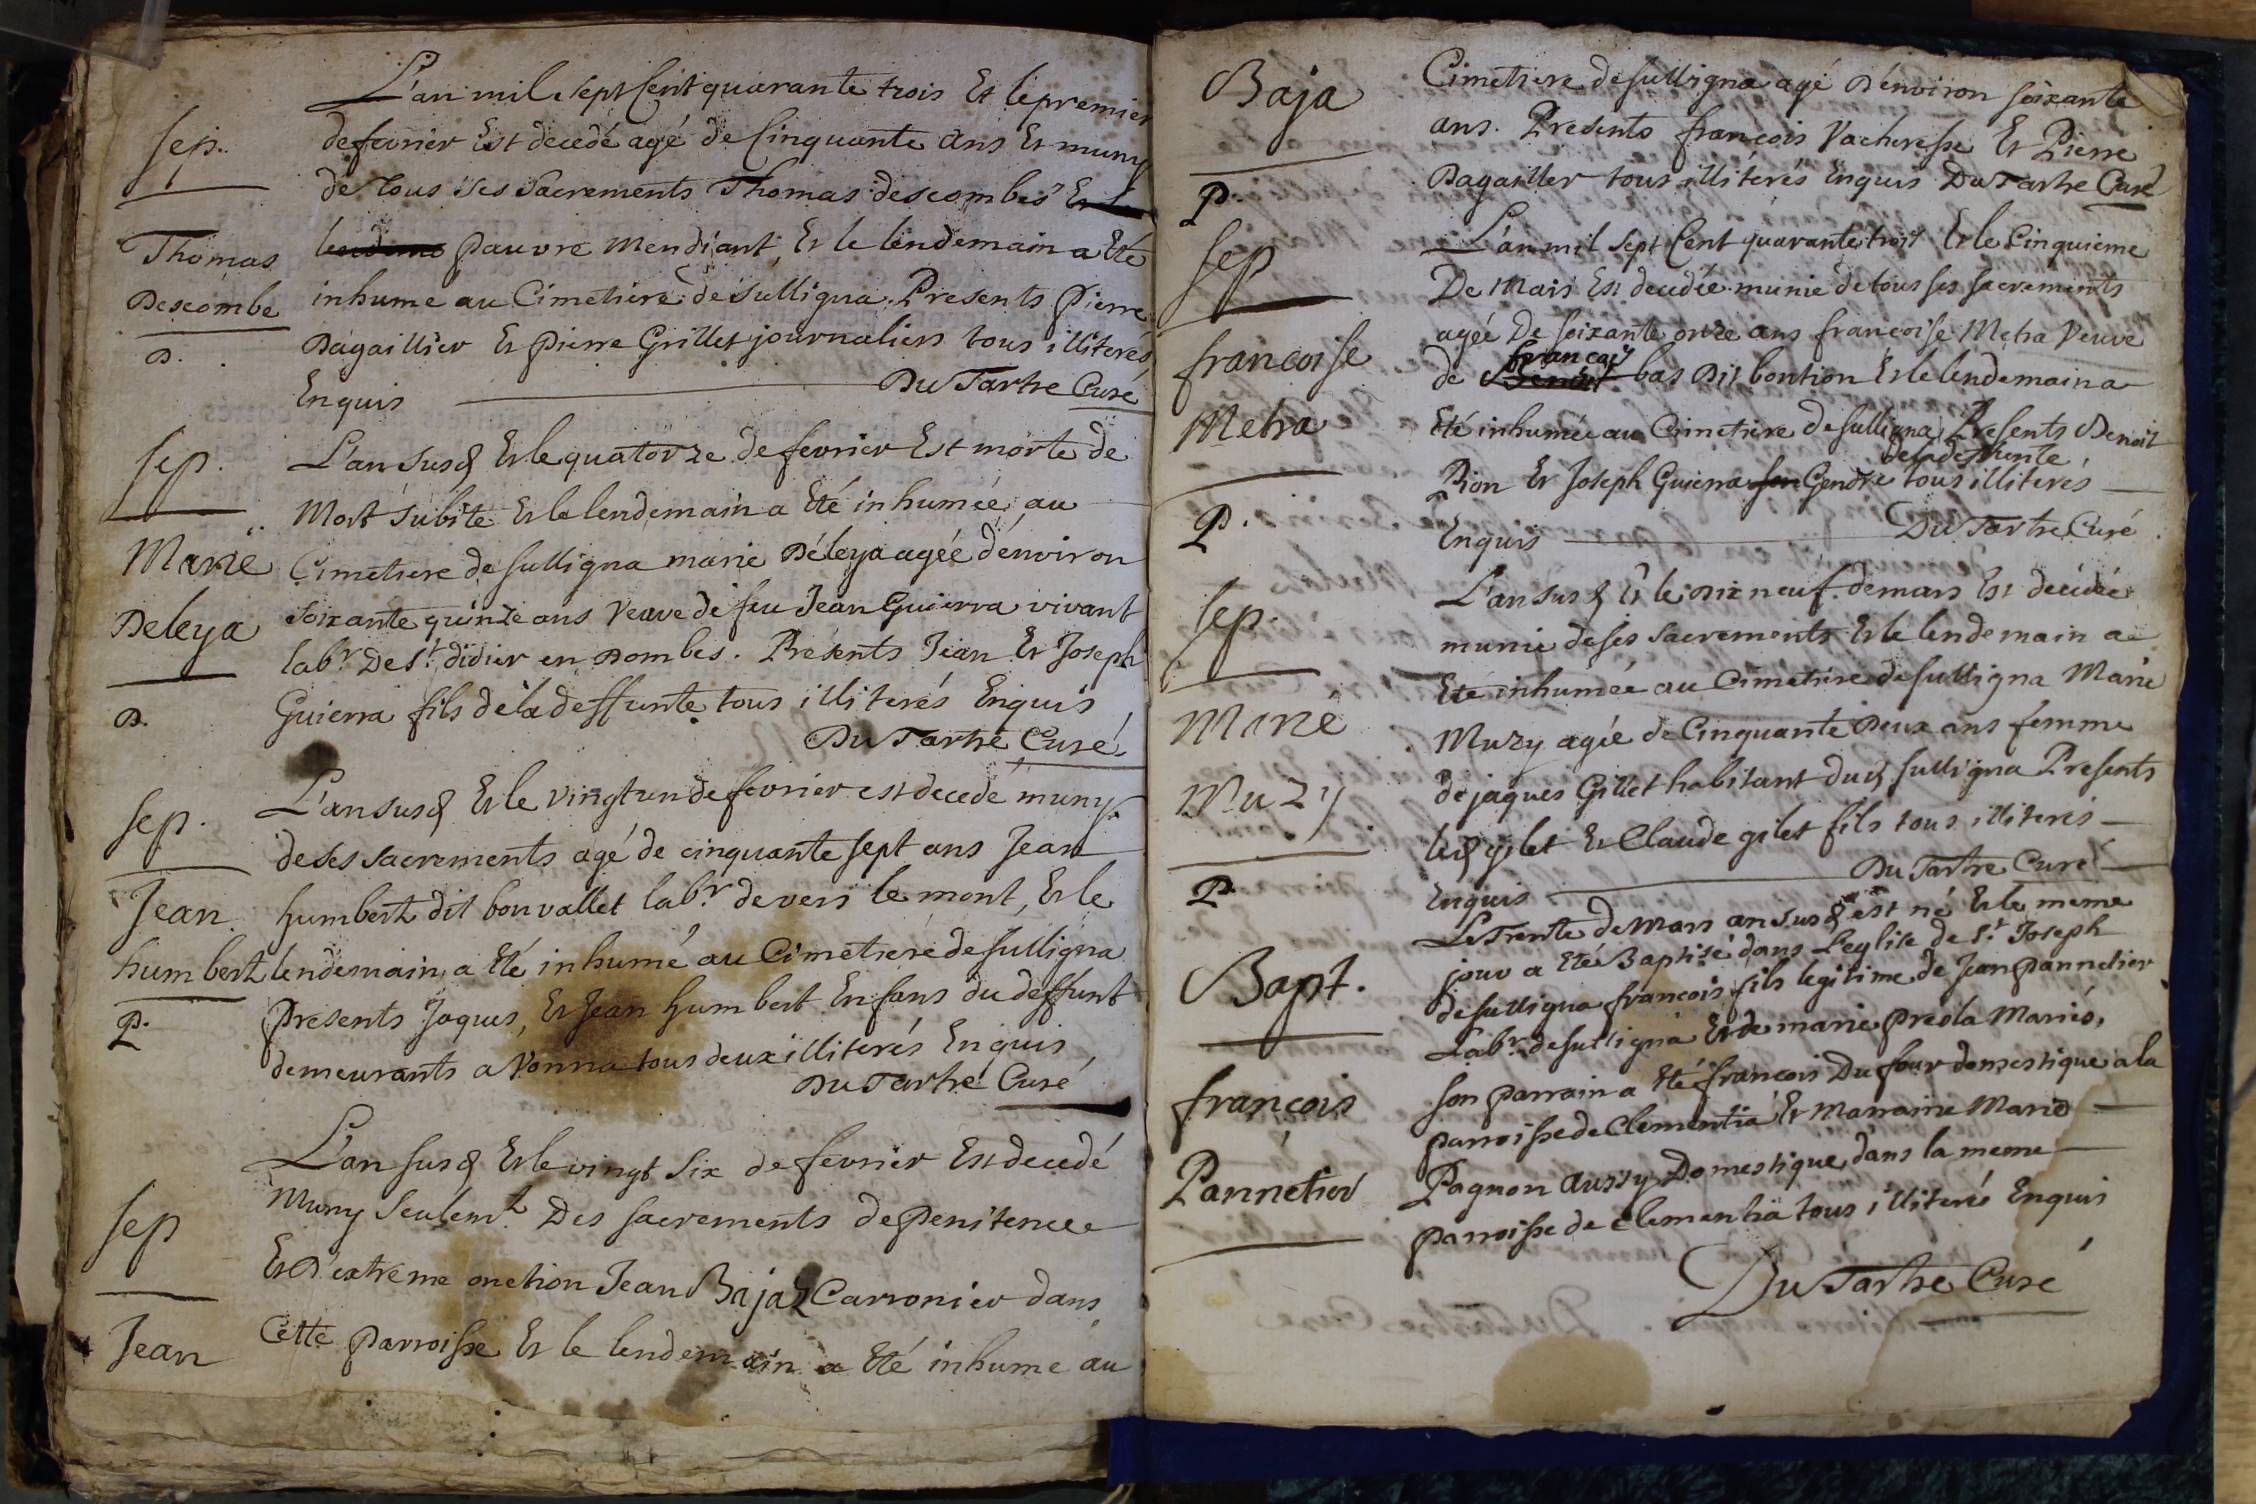 L'an mil sept Cent quarante trois Et le premier
de fevrier Est decedé agé de Cinquante ans Et muny
de tous ses Sacrements Thomas descombes Et le
lendema pauvre Mendiant, Et le lendemain a Eté
inhume au Cimetiere de Sulligna. Presents pierre
Bagaillier Et pierre Grillet journaliers tous illiterés
Enquis Du Tartre Curé
Sep.
Thomas
Descombe
P.
L'an Susd Et le quatorze de fevrier Est morte de
Mort Subite Et le lendemain a Eté inhumée au
Cimetiere de Sulligna marie Déleya agée d'environ
Soixante quinze ans Veuve de feu Jean Guierra vivant
labr De St. didier en Dombes. Présents Jean Et Joseph
Guierra fils dela deffunte tous illiterés Enquis
Du Tartre Curé
Sep.
Marie
Deleya
P.
L'an Susd Et le Vingt un de fevrier est decedé muny
de ses sacrements agé de cinquante sept ans Jean
humbert dit bonvallet labr. de vers le mont, Et le
lendemain a Eté inhumé au Cimetiere de Sulligna
Presents Jaques, Et Jean humbert Enfans du deffunt
demeurants a Vonna tous deux illiterés Enquis
Du Tartre Curé
Sep.
Jean
humbert
P.
L'an Susd Et le vingt Six de fevrier Est decedé
Muny Seulemt. Des sacrements de Penitence
Et D'extreme onction Jean Baja Carronier dans
Cette parroisse Et le lendemain a Eté inhume au
Sep
Jean
Baja
P.
Cimetiere de Sulligna agé D'environ soixante
ans. Presents françois Vacheresse Et Pierre
Bagaillier tous illiterés Enquis Du Tartre Curé
L'an mil Sept Cent quarante trois Et le Cinquieme
De Mars Est decedée munie de tous ses sacrements
agée De soixante onze ans françoise Metra Veuve
de Benoit françois bas Dit bontion Et le lendemain a
Eté inhumée au Cimetiere de Sulligna. Presents Benoit
Pion Et Joseph Guierra son Gendre de la deffunte tous illiterés
Enquis Du Tartre Curé
Sep
francoise
Metra
P.
L'an Susd Et le Dix neuf de mars Est decedée
munie de ses Sacrements Et le lendemain a
Eté inhumée au Cimetiere de Sulligna Marie
Muzy agée de Cinquante Deux ans femme
de jaques Gillet habitant dud Sulligna Presents
led gilet Et Claude gilet fils tous illiterés
Enquis Du Tartre Curé
Sep.
Marie
Muzy
P.
Le Trente de Mars an Susd est né Et le meme
jour a Eté Baptisé dans L'eglise de St. Joseph
de Sulligna françois fils legitime de Jean pannetier
Labr. de Sulligna Et de marie preola Mariés,
Son parrain a Eté françois Dufour domestique a la
parroisse de Clementia Et Marraine Marie
Pagnon aussy Domestique dans la meme
parroisse de Clementia tous illiterés Enquis
Du Tartre Curé
Bapt.
françois
Pannetier